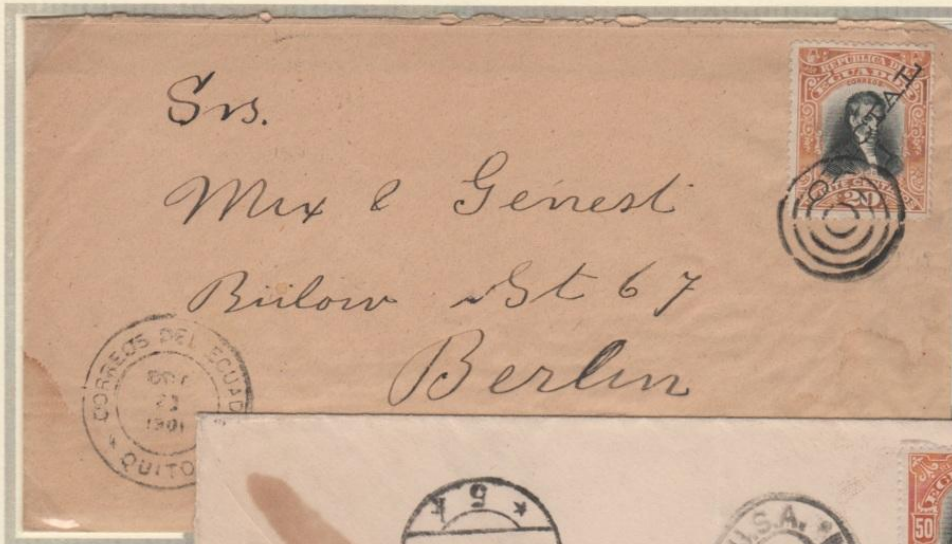 Srs.
Mix & Genest
Bülow St 67
Berlin
REPUBLICA DEL
ECUADOR
CORREOS
20
CORREOS DEL ECUAD
OCT
23
1901
QUITO
5 K
U.S.A.
50